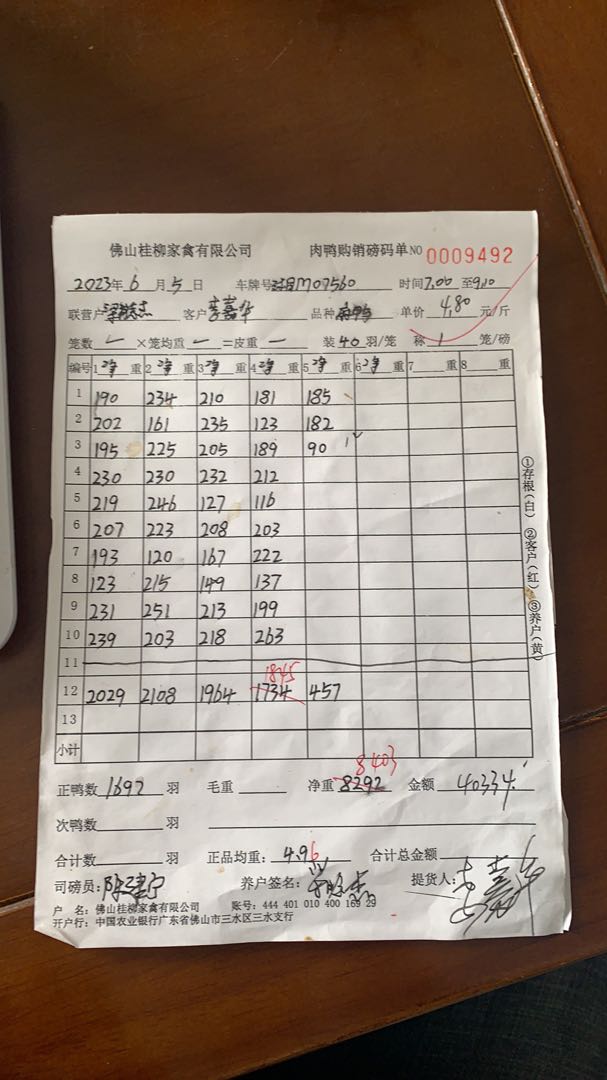 佛山桂柳家禽有限公司 肉鸭购销磅码单 NO 0009492
2023年 6 月 5 日 车牌号 M07560 时间7.00 至9.10
联营户 杰 客户 李嘉华 品种 单价 4.80 元/斤
笼数 ×笼均重 一 =皮重 一 装40羽/笼 称 1 笼/磅
编号 1 净 重 2 净 重 3 净 重 4 净 重 5 净 重 6 净 重 7 重 8 重
1 190 234 210 181 185
2 202 161 235 123 182
3 195 225 205 189 90
4 230 230 232 212
5 219 246 127 116
6 207 223 208 203
7 193 120 167 222
8 123 215 149 137
9 231 251 213 199
10 239 203 218 263
11
1845
12 2029 2108 1964 1734 457
13
小计
8403
正鸭数 1692 羽 毛重 净重 8292 金额 40334
次鸭数 羽
合计数 羽 正品均重: 4.96 合计总金额
司磅员: 陈建宁 养户签名: 提货人: 李嘉华
户 名: 佛山桂柳家禽有限公司 账号: 444 401 010 400 169 29
开户行: 中国农业银行广东省佛山市三水区三水支行
①存根(白) ②客户(红) ③养户(黄)